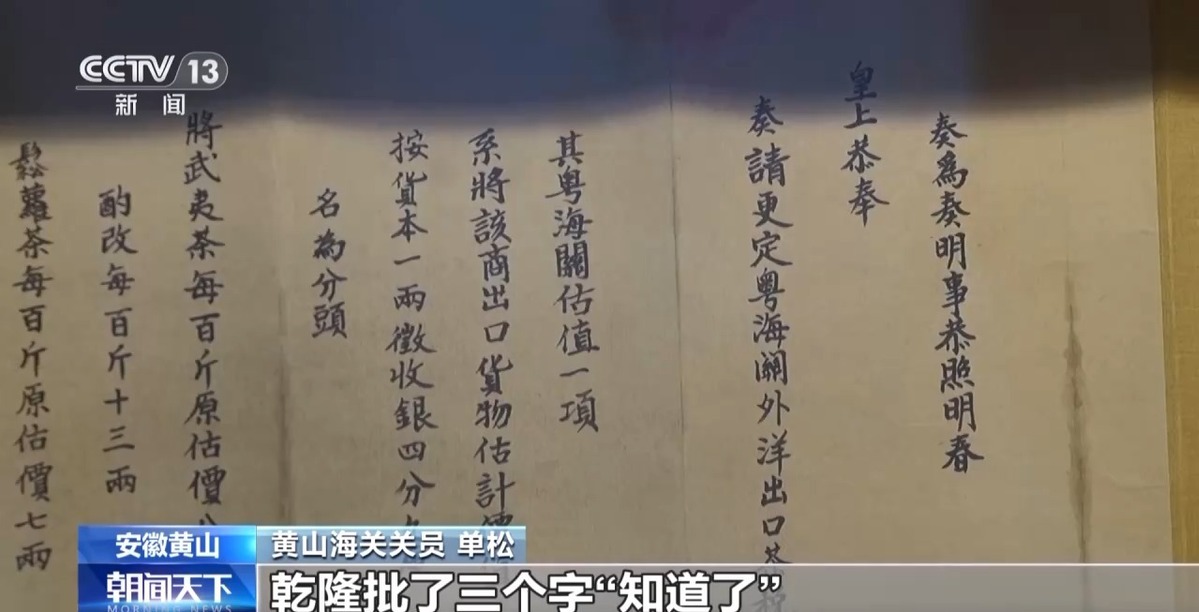 CCTV 13
新闻
奏為奏明事恭照明春
皇上恭奉
奏請更定粵海關外洋出口茶
其粵海關估值一項
系將該商出口貨物估計價
按貨本一兩徵收銀四分
名為分頭
將武夷茶每百斤原估價八
酌改每百斤十三兩
鬆蘿茶每百斤原估價七兩
安徽黄山
黄山海关关员 单松
朝闻天下
MORNING NEWS
乾隆批了三个字“知道了”